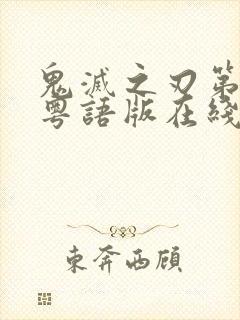 鬼滅之刃第
粵語版在綫
東奔西顧